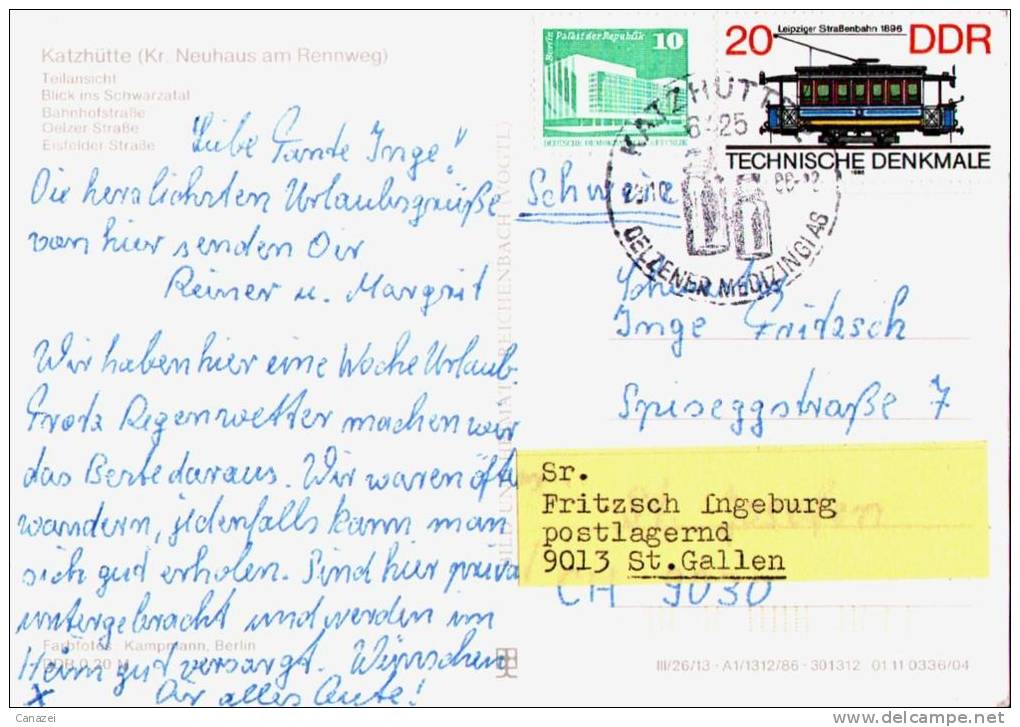 Katzhütte (Kr. Neuhaus am Rennweg)
Teilansicht
Blick ins Schwarzatal
Bahnhofstraße
Oelzer Straße
Eisfelder Straße
Liebe Tante Inge!
Die herzlichsten Urlaubsgrüße
von hier senden Dir
Reiner u. Margrit
Wir haben hier eine Woche Urlaub.
Trotz Regenwetter machen wir
das Beste daraus. Wir waren öfter
wandern, jedenfalls kann man
sich gut erholen. Sind hier priva
untergebracht und werden im
Heim gut versorgt. Wünschen
Dir alles Gute!
Farbfotos Kampmann, Berlin
DDR 0,20 M
BILD UND HEIMAT REICHENBACH (VOGTL)
Berlin Palast der Republik
10
DEUTSCHE DEMOKRATISCHE REPUBLIK
Leipziger Straßenbahn 1896
20 DDR
TECHNISCHE DENKMALE
1986
KATZHÜTTE
6425
OELZENER MEDIZINGLAS
Schweiz
Schwester
Inge Fritzsch
Spiseggstraße 7
Sr.
Fritzsch Ingeburg
postlagernd
9013 St.Gallen
CH 9030
III/26/13 · A1/1312/86 · 301312 01 11 0336/04
Canazei
http://www.delcampe.net